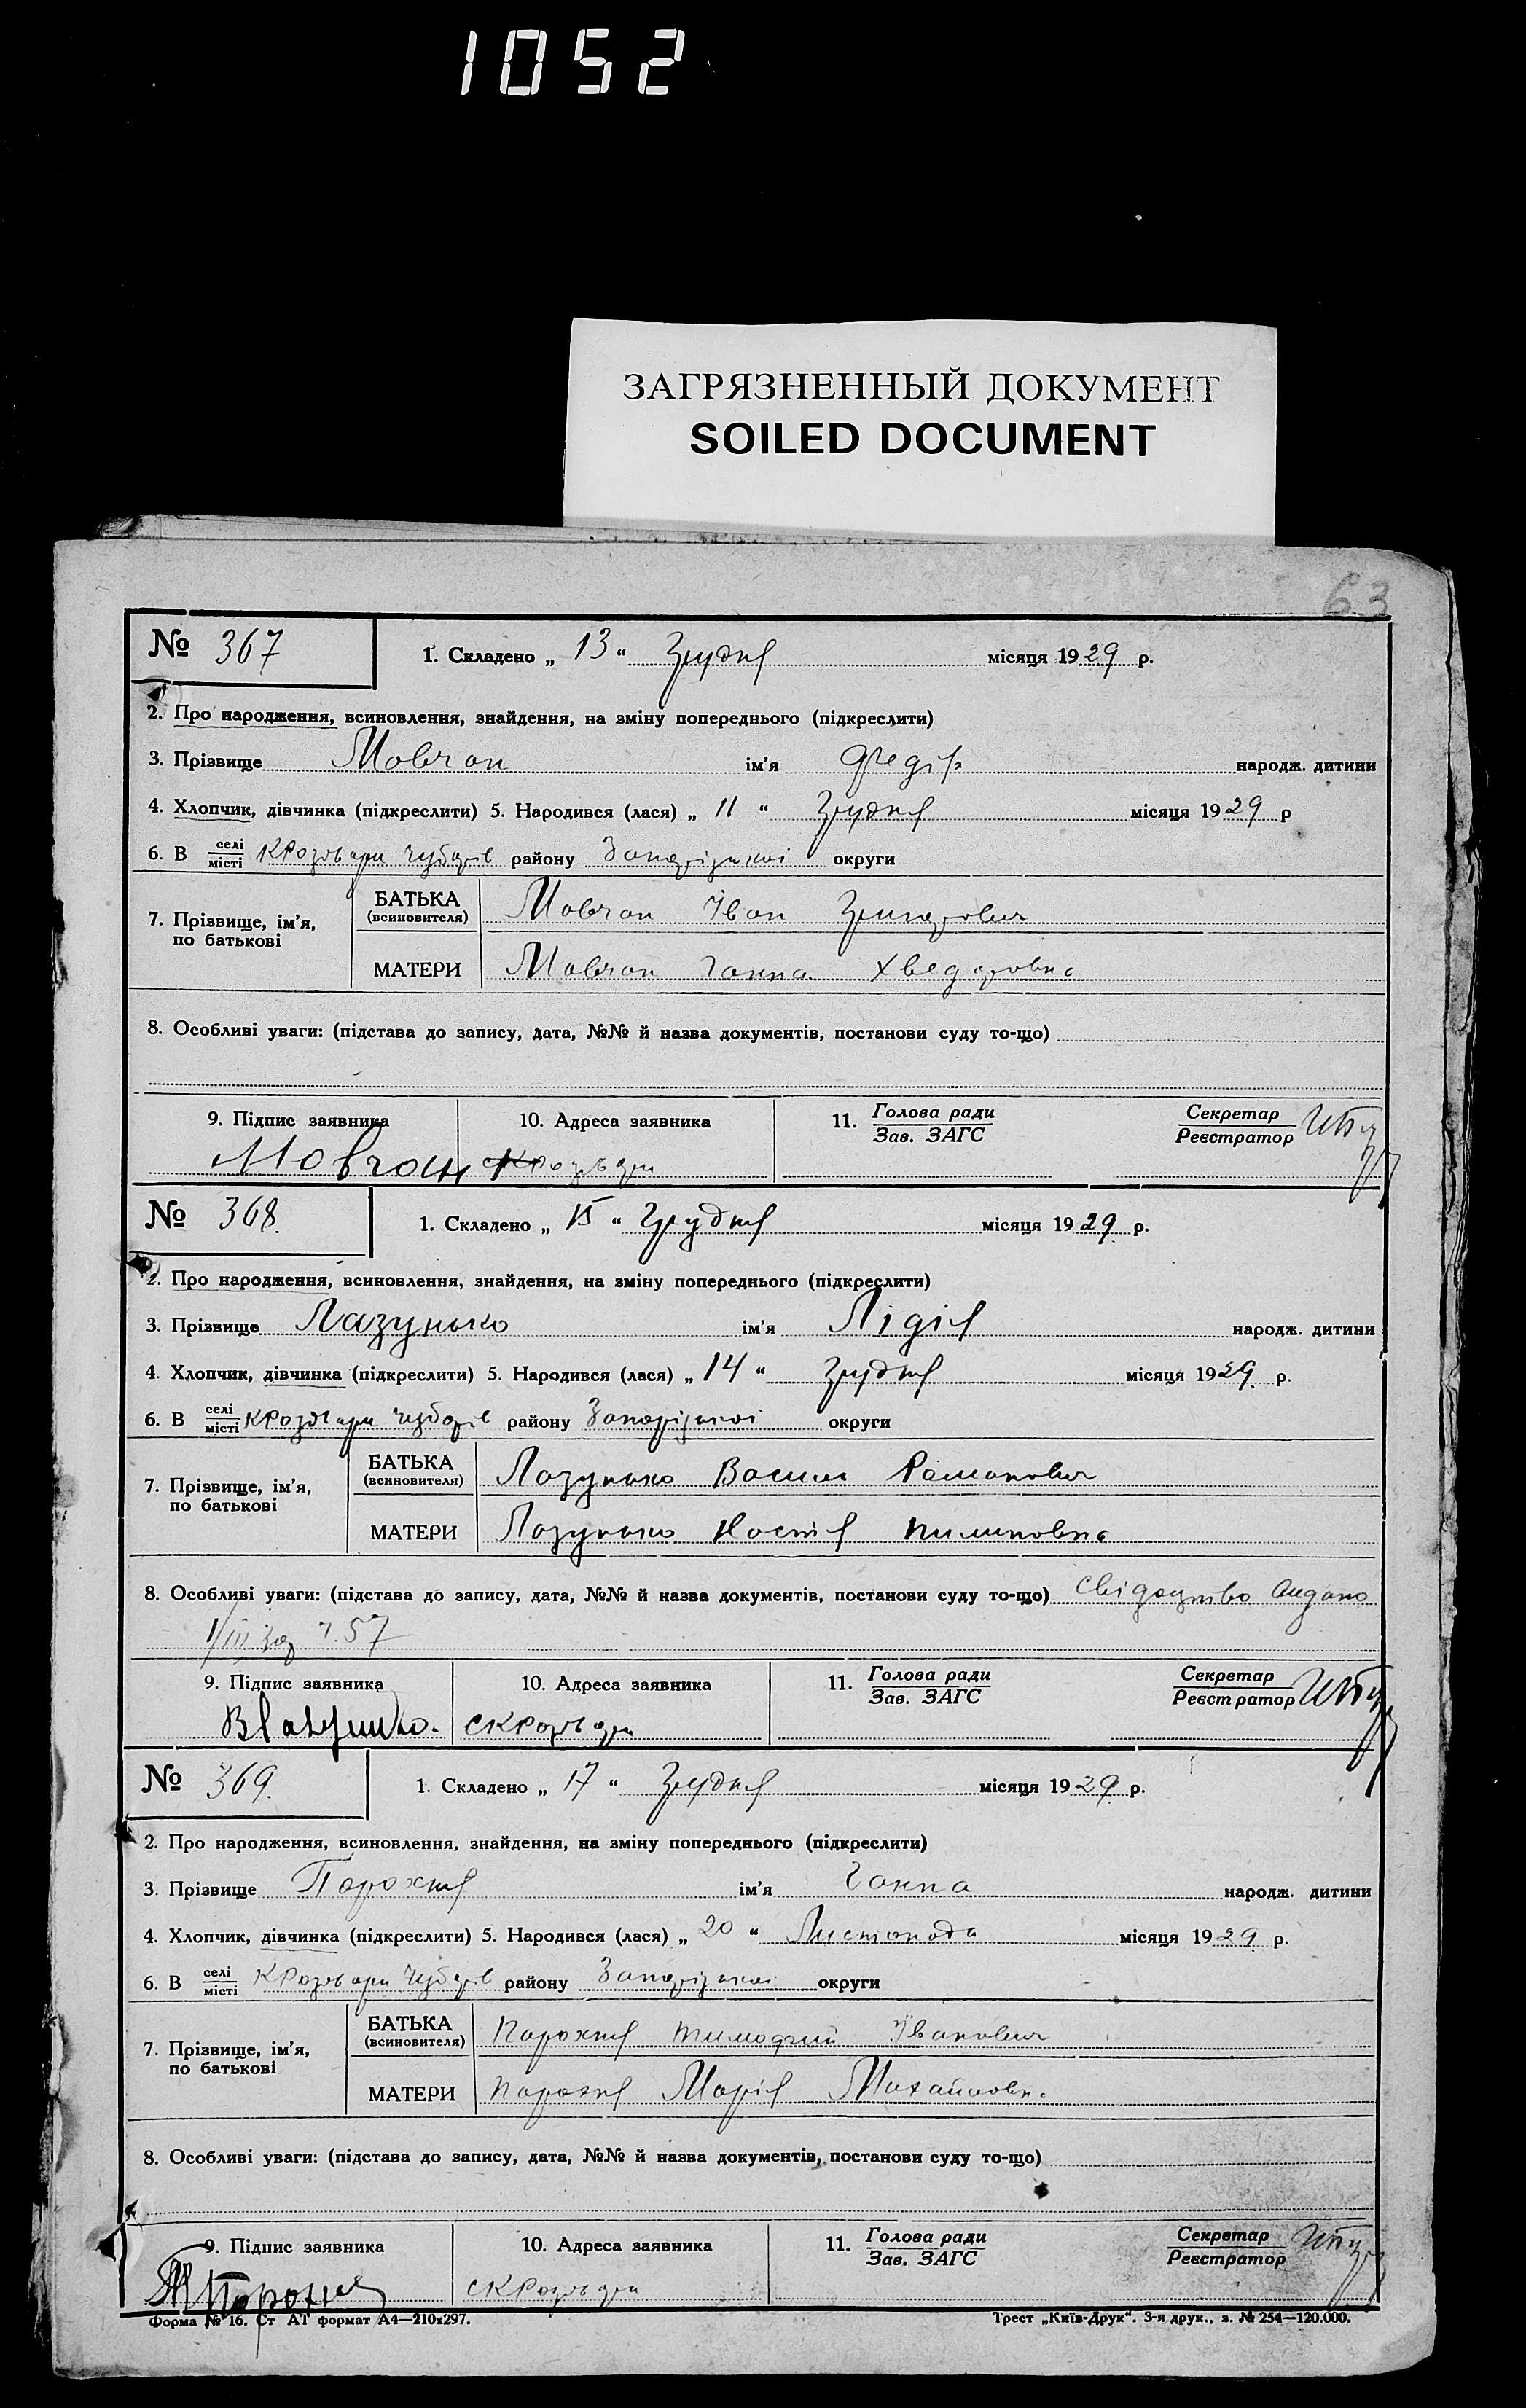 1052
ЗАГРЯЗНЕННЫЙ ДОКУМЕНТ
SOILED DOCUMENT
63
№ 367 1. Складено „ 13 “ Грудня місяця 1929 р.
2. Про народження, всиновлення, знайдення, на зміну попереднього (підкреслити)
3. Прізвище Мовчан ім'я народж. дитини
4. Хлопчик, дівчинка (підкреслити) 5. Народився (лася) „ 11 “ Грудня місяця 1929 р
6. В селі місті району Запорізької округи
7. Прізвище, ім'я, по батькові
БАТЬКА (всиновителя) Мовчан Іван
МАТЕРИ Мовчан Ганна Хведоровна
8. Особливі уваги: (підстава до запису, дата, №№ й назва документів, постанови суду то-що)
9. Підпис заявника 10. Адреса заявника 11. Голова ради Зав. ЗАГС Секретар Реєстратор
Мовчан
№ 368. 1. Складено „ 15 “ Грудня місяця 1929. р.
2. Про народження, всиновлення, знайдення, на зміну попереднього (підкреслити)
3. Прізвище Лазунько ім'я Лідія народж. дитини
4. Хлопчик, дівчинка (підкреслити) 5. Народився (лася) „ 14 “ Грудня місяця 1929. р.
6. В селі місті району Запорізької округи
7. Прізвище, ім'я, по батькові
БАТЬКА (всиновителя) Лазунько Василь Романович
МАТЕРИ Лазунько Настя Пилиповна
8. Особливі уваги: (підстава до запису, дата, №№ й назва документів, постанови суду то-що) свідоцтво видано
1/III ч. 57
9. Підпис заявника 10. Адреса заявника 11. Голова ради Зав. ЗАГС Секретар Реєстратор
№ 369. 1. Складено „ 17 “ Грудня місяця 1929. р.
2. Про народження, всиновлення, знайдення, на зміну попереднього (підкреслити)
3. Прізвище Парохня ім'я Ганна народж. дитини
4. Хлопчик, дівчинка (підкреслити) 5. Народився (лася) „ 20 “ Листопада місяця 1929. р.
6. В селі місті району Запорізької округи
7. Прізвище, ім'я, по батькові
БАТЬКА (всиновителя) Парохня Тимофій Іванович
МАТЕРИ Парохня Марія Михайловна
8. Особливі уваги: (підстава до запису, дата, №№ й назва документів, постанови суду то-що)
9. Підпис заявника 10. Адреса заявника 11. Голова ради Зав. ЗАГС Секретар Реєстратор
Форма № 16. Ст АТ формат А4—210х297. Трест „Київ-Друк“. 3-я друк., з. № 254—120.000.